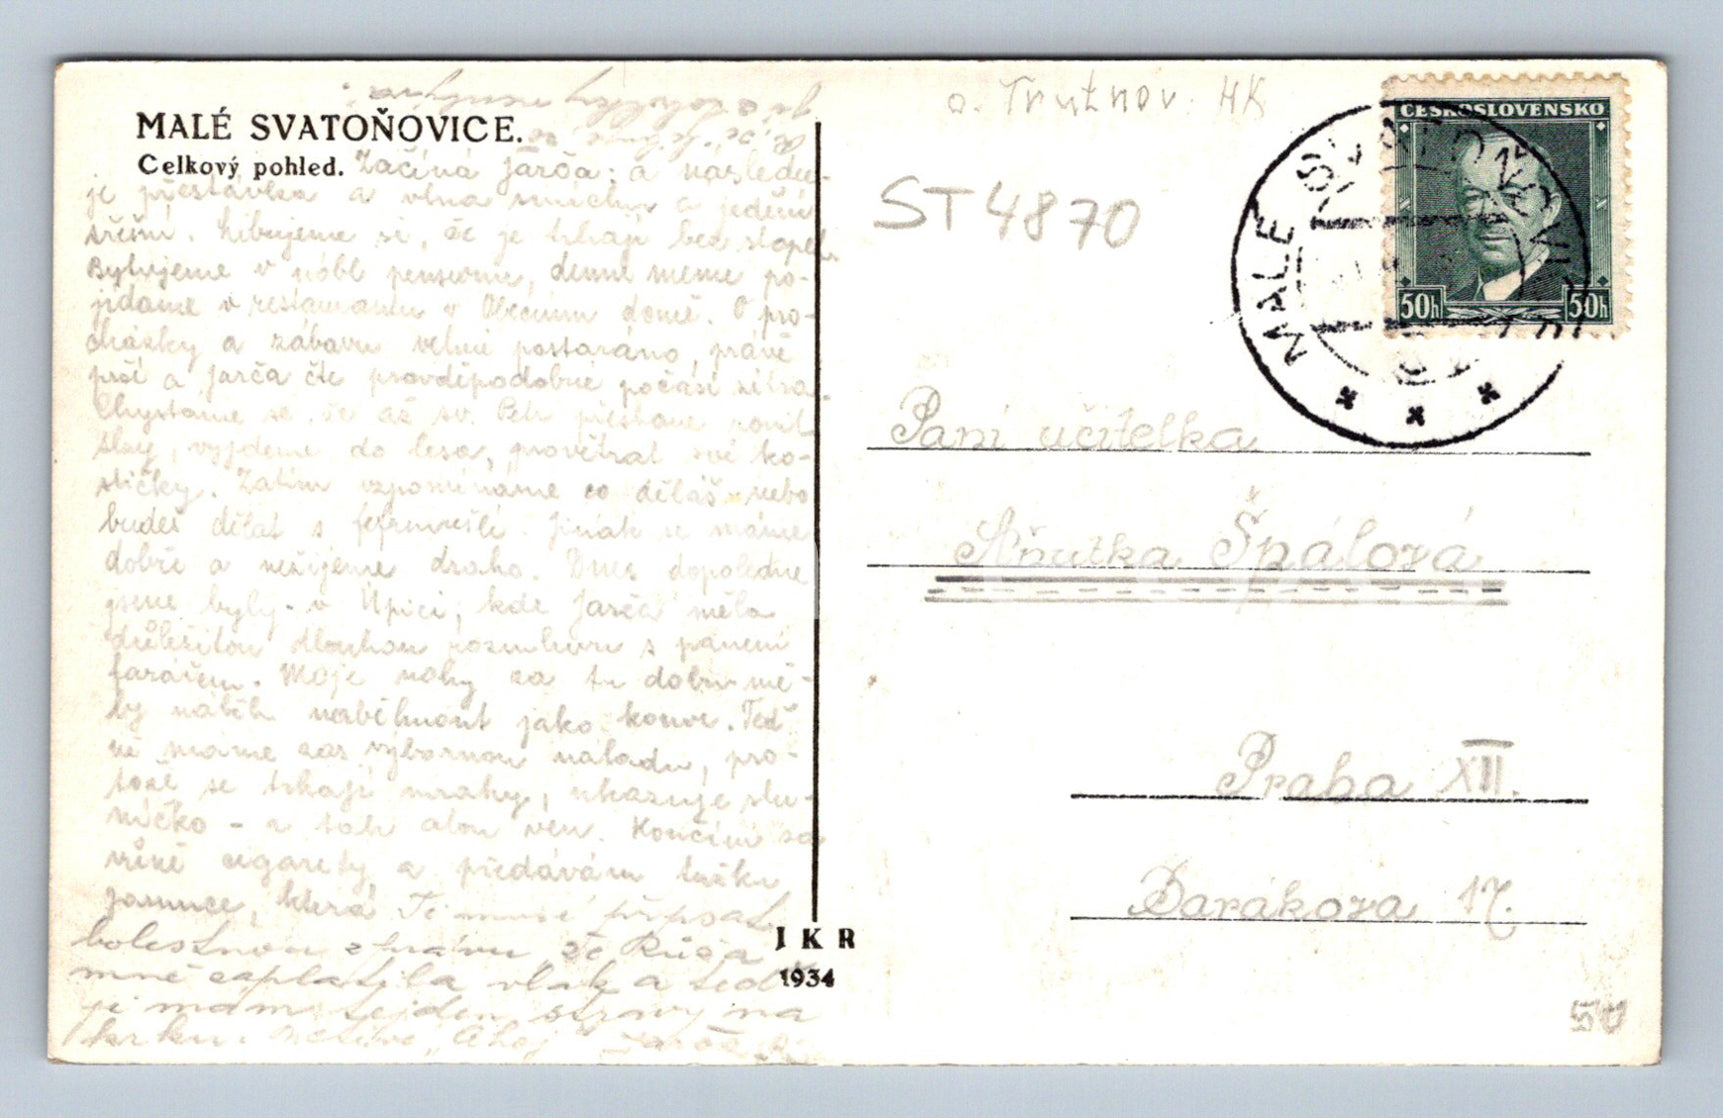 MALÉ SVATOŇOVICE.
Celkový pohled.
Začíná Jarča: a následu-
je přestávka a vlna smíchu a jedení
třešní. Libujeme si, že je trhají bez stopek.
Bytujeme v pensionu, denně po-
jídáme v restaurantu v Obecním domě. O pro-
cházky a zábavu velmi postaráno, právě
prší a Jarča čte pravděpodobné počasí zítra.
Chystáme se, že až sv. Petr přestane ronit
slzy, vyjdeme do lesa, provětrat své ko-
stičky. Zatím vzpomínáme co děláš nebo
budeš dělat s Jinak se máme
dobře a nežijeme draho. Dnes dopoledne
jsme byly v Úpici, kde Jarča měla
důležitou dlouhou rozmluvu s panem
farářem. Moje nohy za tu dobu mě-
ly náběh naběhnout jako konve. Teď
máme zas výbornou náladu, pro-
tože se trhají mraky, ukazuje slu-
níčko - a tak alou ven. Končím za
vůně cigarety a předávám tužku
Jarunce, která Ti musí připsat
bolestnou zprávu, že Růža
mně zaplatila vlak a teď
ji mám týden stravy na
krku. Ahoj
J K R
1934
o. Trutnov HK
ST 4870
ČESKOSLOVENSKO
50h 50h
MALÉ SVATOŇOVICE
Paní učitelka
Aňutka Špálová
Praha XII.
Barákova 17.
50